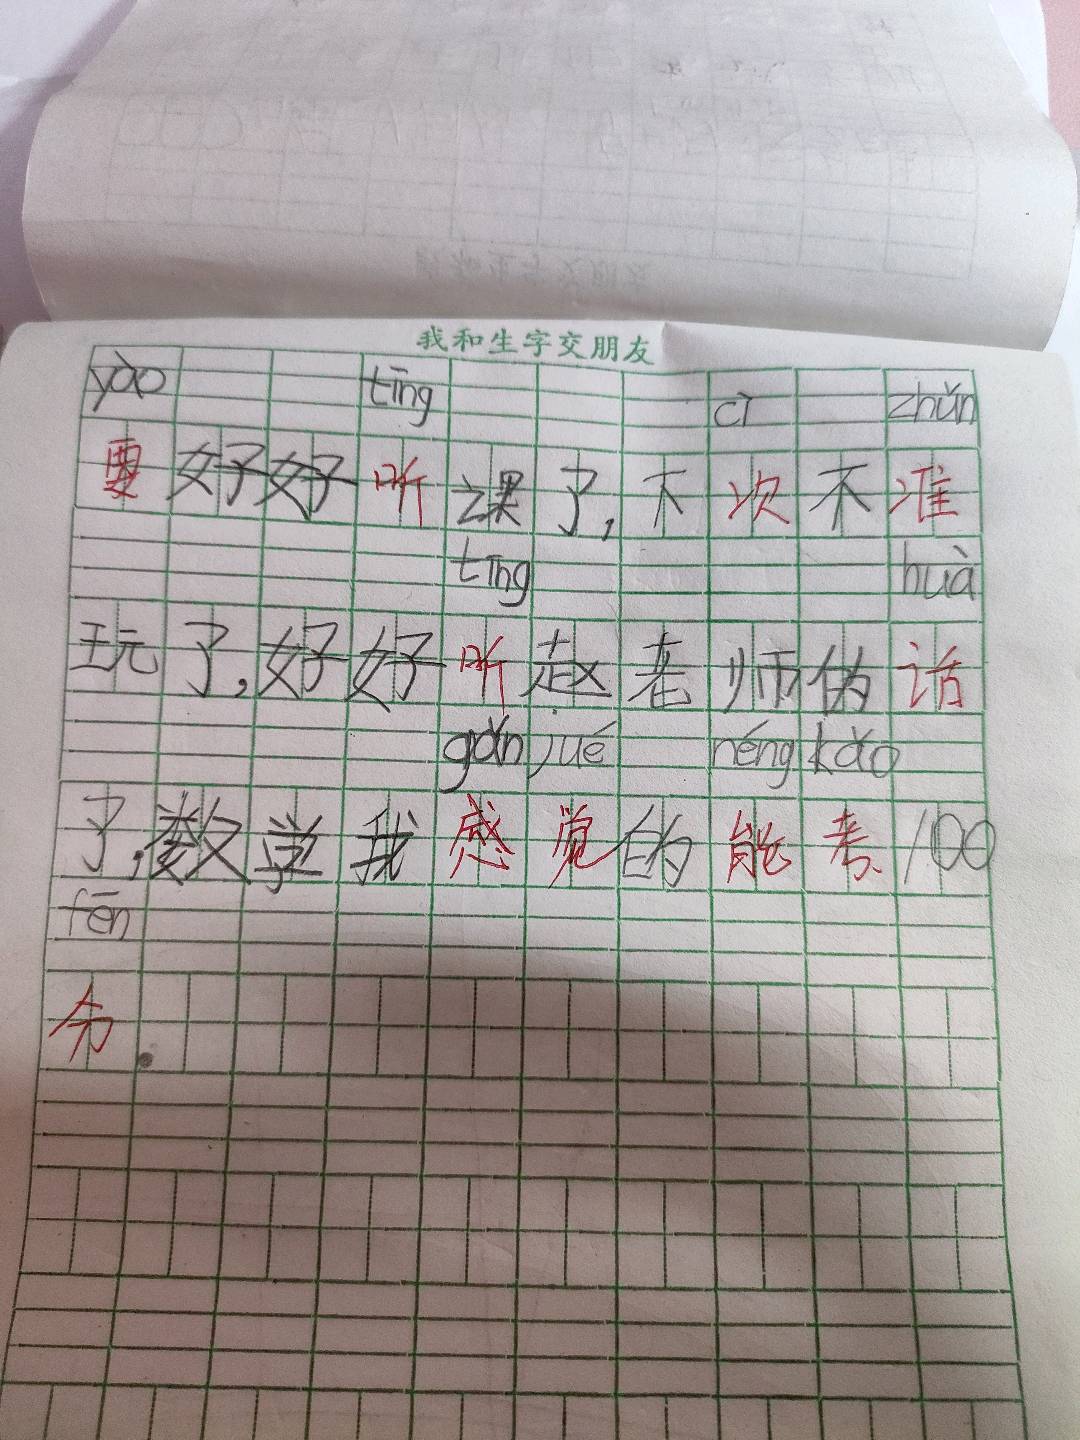 我和生字交朋友
yào tīng cì zhǔn
要好好听课了,下次不准
tīng huà
玩了,好好听赵老师的话
gǎn jué néng kǎo
了,数学我感觉的能考100
fēn
分.